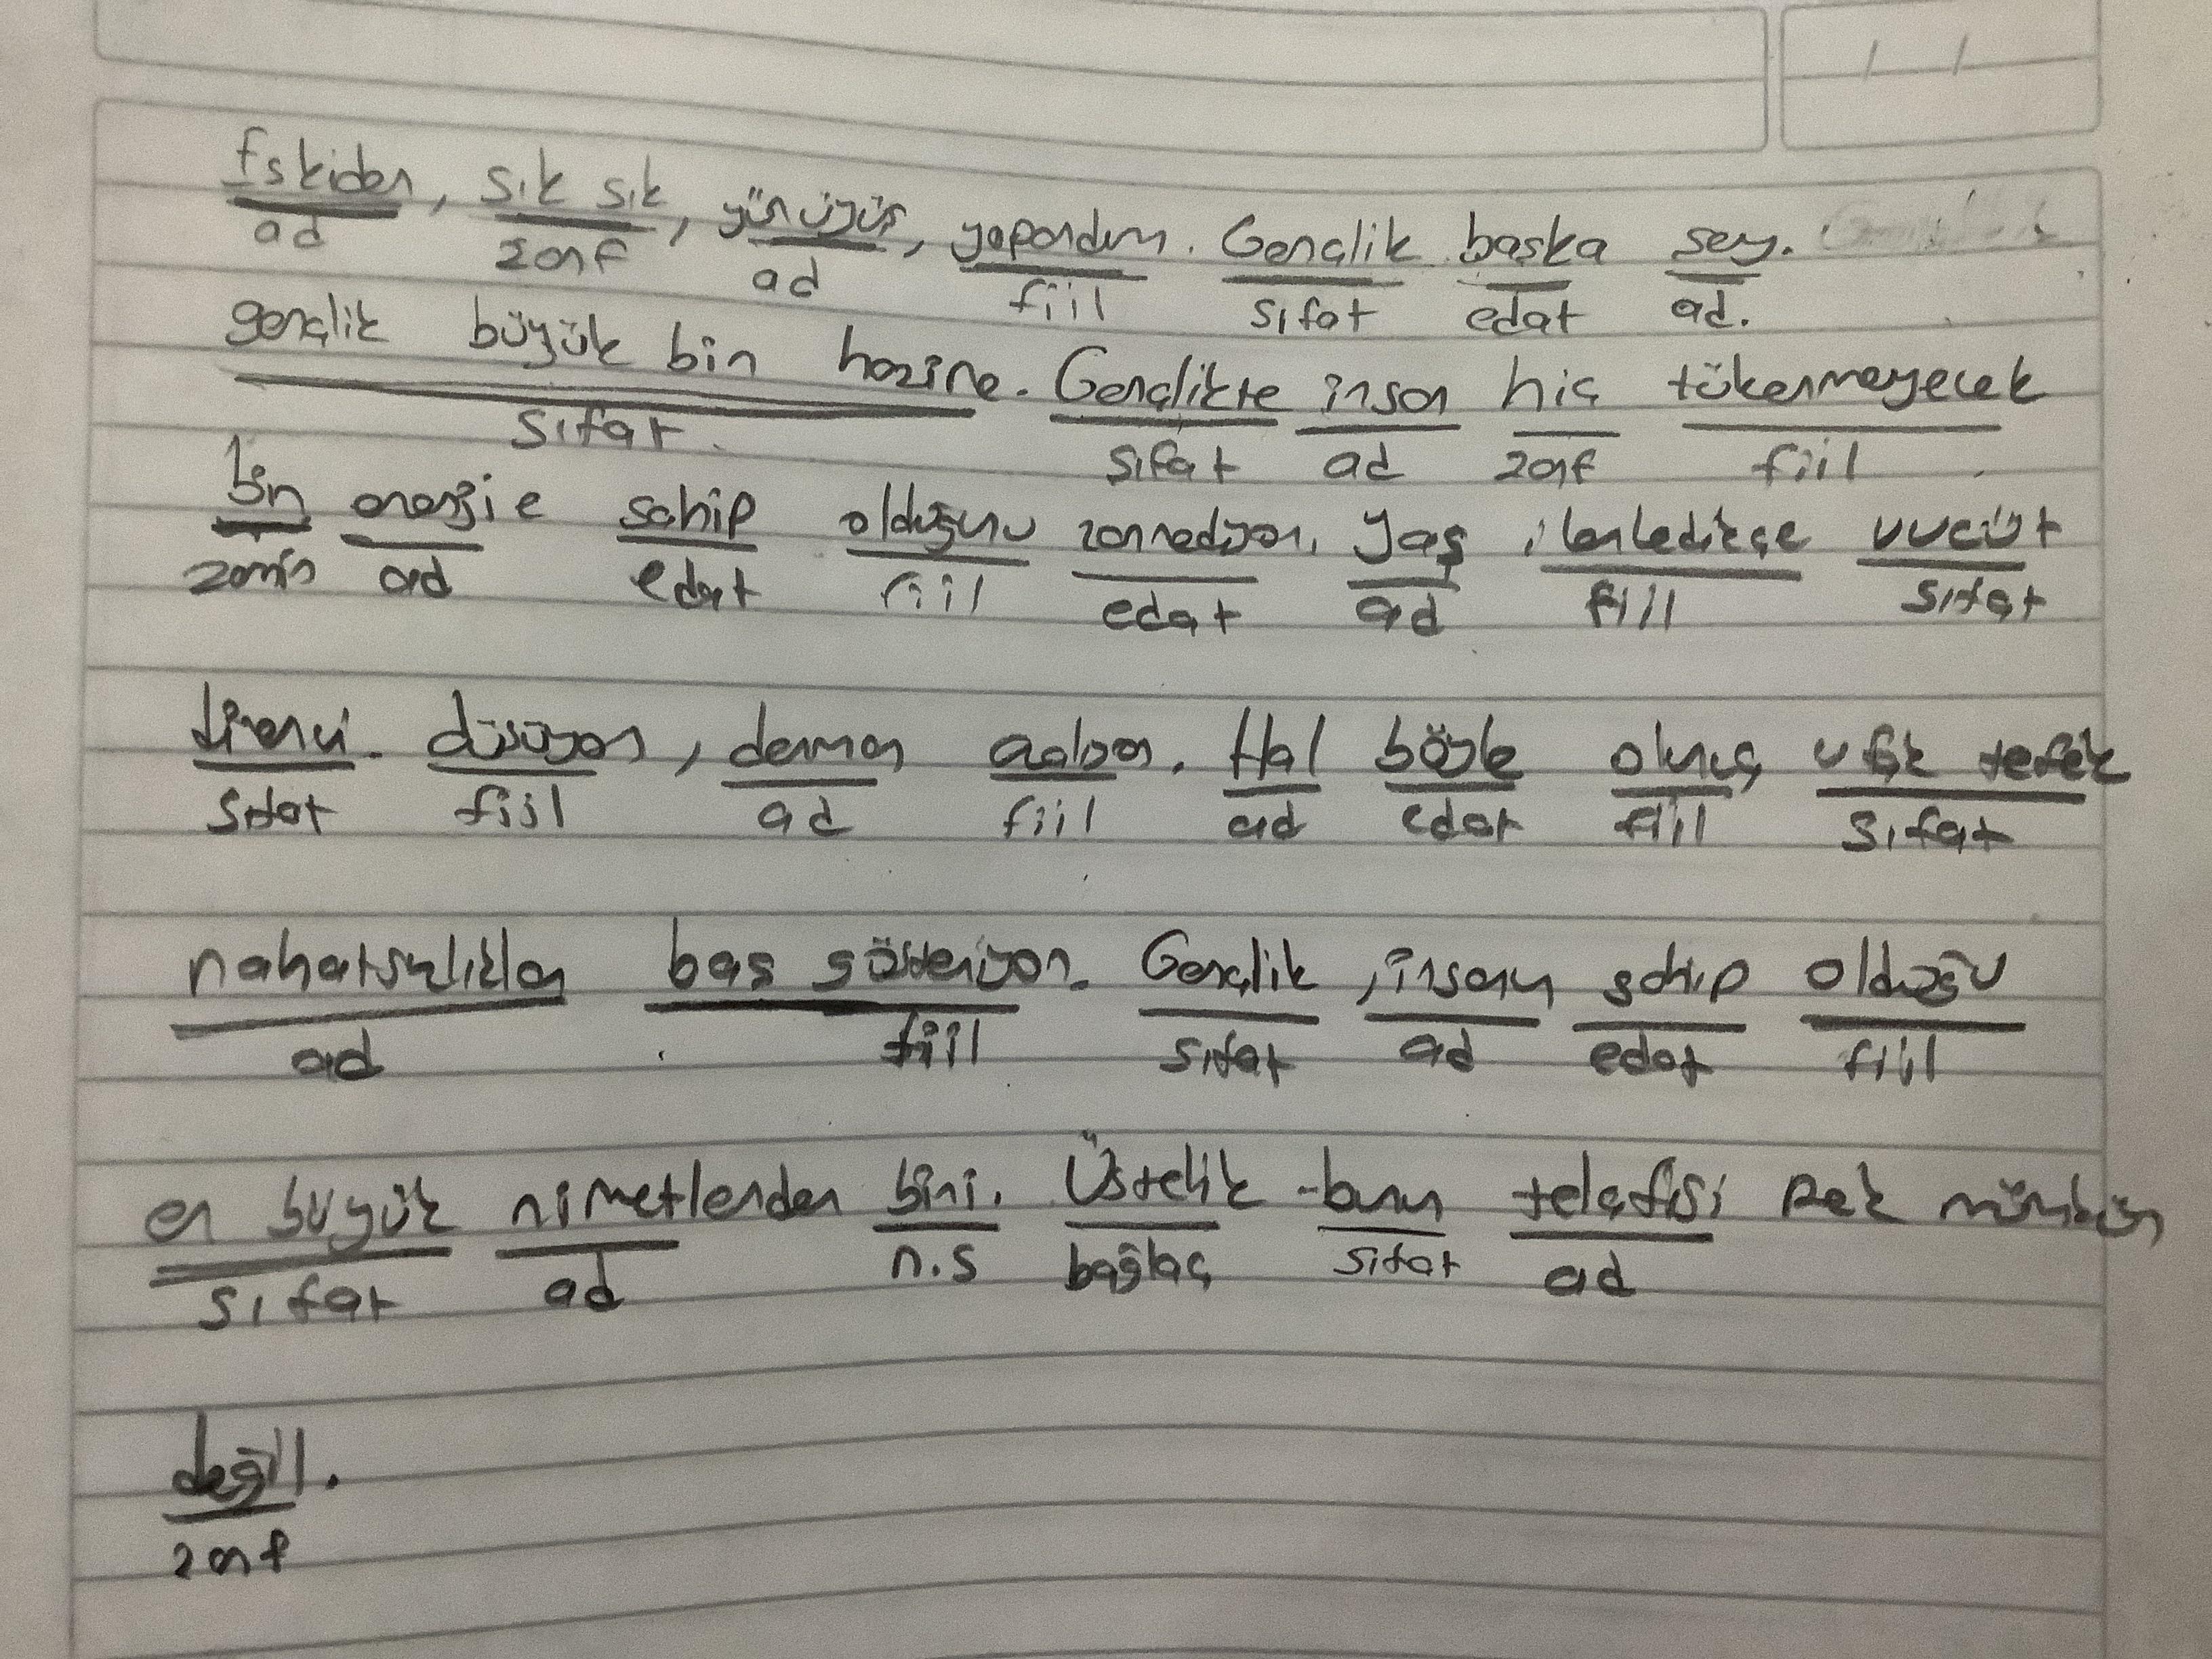 Eskiden, sık sık, yürüyüş, yapardım. Gençlik başka şey.
ad zarf ad fiil sıfat edat ad.
gençlik büyük bir hazine. Gençlikte insan hiç tükenmeyecek
sıfat sıfat ad zarf fiil
bir enerjie sahip olduğunu zannediyor. Yaş ilerledikçe vucüt
zamir ad edat fiil edat ad fiil sıfat
direnci. düşüyor, derman azalıyor. Hal böyle olunca ufak tefek
sıfat fiil ad fiil ad edat fiil sıfat
rahatsızlıklar baş gösteriyor. Gençlik, insanın sahip olduğu
ad fiil sıfat ad edat fiil
en büyük nimetlerden biri. Üstelik bunun telafisi pek mümkün
sıfat ad n.s bağlaç sıfat ad
değil.
zarf